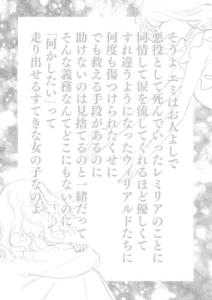 そうよエミはお人よしで
悪役として死んでいったレミリアのことに
同情して涙を流してくれるほど優しくて
すれ違うようになったウィリアルドたちに
何度も傷つけられたくせに
でも救える手段があるのに
助けないのは見捨てるのと一緒だって
そんな義務なんてどこにもないのに
「何かしたい」って
走り出せるすてきな女の子なのよ